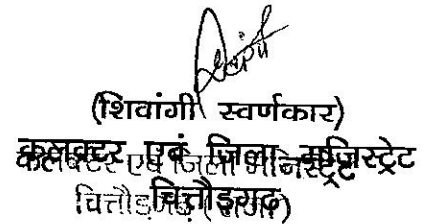 (शिवांगी स्वर्णकार)
कलक्टर एवं जिला मजिस्ट्रेट
चित्तौड़गढ़